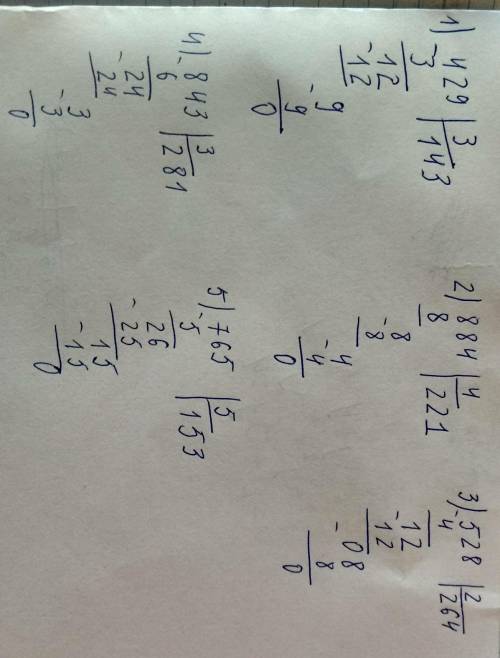 1) 429 | 3
-3 143
12
-12
-9
9
0
2) 884 | 4
8 221
-8
8
-4
4
0
3) 528 | 2
-4 264
-12
12
-08
8
0
4) 843 | 3
-6 281
24
-24
-3
3
0
5) 765 | 5
-5 153
26
-25
15
-15
0